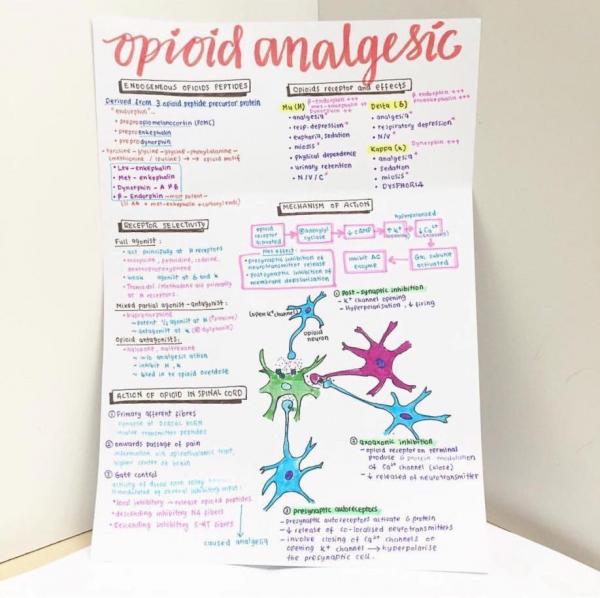 opioid analgesic
ENDOGENEOUS OPIOIDS PEPTIDES
Derived from 3 opioid peptide precursor protein
"endorphin"
• prepro opiomelanocortin (POMC)
• preproenkephalin
• preprodynorphin
- tyrosine - glycine - glycine - phenylalanine -
(methionine / leucine) → → opioid motif
• Leu - enkephalin
• Met - enkephalin
• Dynorphin - A & B
• β - Endorphin - most potent
(31 AA + met-enkephalin + carboxyl end)
RECEPTOR SELECTIVITY
Full agonist:
• act principally at M receptors
• morphine, pethidine, codeine,
dextropropoxyphene
• weak agonist at δ and k
• Tramadol / methadone act primarily
at M receptors.
Mixed partial agonist - antagonist:
• buprenorphine
- potent ½ agonist at M
- antagonist at k (dysphoria)
Opioid antagonists:
• naloxone, naltrexone
- w/o analgesic action
- inhibit M, k
- used in tx opioid overdose
ACTION OF OPIOID IN SPINAL CORD
① Primary afferent fibres
synapse at DORSAL HORN
release transmitter peptides
② onwards passage of pain
information via spinothalamic tract,
higher center of brain
③ Gate control
activity of dorsal horn relay
modulated by several inhibitory input:
• local inhibitory → release opioid peptides
• descending inhibitory NA fibres
• Descending inhibitory 5-HT fibres
caused analgesia
Opioids receptor and effects
Mu (M)
β-endorphin +++
met-enkephalin ++
Dynorphin ++
• analgesia
• resp. depression
• euphoria, sedation
• miosis
• physical dependence
• urinary retention
• N/V/C
Delta (δ)
β-endorphin +++
• analgesia
• respiratory depression
• N/V
Kappa (k)
Dynorphin +++
• analgesia
• sedation
• miosis
• DYSPHORIA
MECHANISM OF ACTION
hyperpolarised
opioid receptor activated
adenylyl cyclase
↓ cAMP
↑ K+
↓ Ca2+
Net effect:
• presynaptic inhibition of
neurotransmitter release
• postsynaptic inhibition of
membrane depolarisation
inhibit AC enzyme
subunit activated
① Post-synaptic inhibition
- K+ channel opening
- Hyperpolarisation, ↓ firing
(open K+ channel)
opioid neuron
② axoaxonic inhibition
- opioid receptor on terminal
produce G protein modulation
of Ca2+ channel (close)
- ↓ released of neurotransmitter
③ presynaptic autoreceptors
- Presynaptic autoreceptors activate G protein
- ↓ release of co-localised neurotransmitters
- involve closing of Ca2+ channels or
opening K+ channel → hyperpolarise
the presynaptic cell.